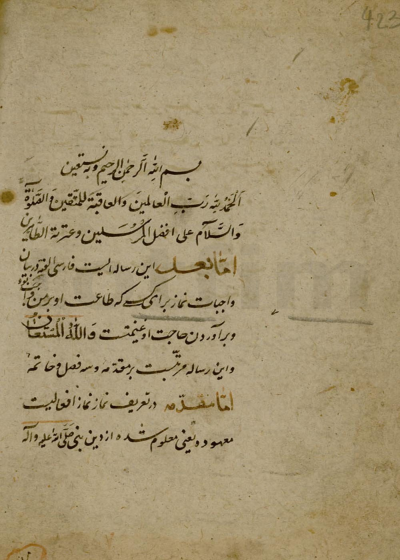 423
بسم الله الرحمن الرحیم وبه نستعین
الحمد لله رب العالمین والعاقبة للمتقین والصلوة
والسلام علی افضل المرسلین وعترته الطاهرین
اما بعد این رساله ایست فارسی الغه در بیان
واجبات نماز برای که طاعت او برمن
وبر آوردن حاجت او غنیمتست والله المستعان
واین رساله مرتبست بر مقدمه وسه فصل و خاتمه
اما مقدمه در تعریف نماز نماز افعالیست
معهوده یعنی معلوم شده از دین نبی صلی الله علیه وآله